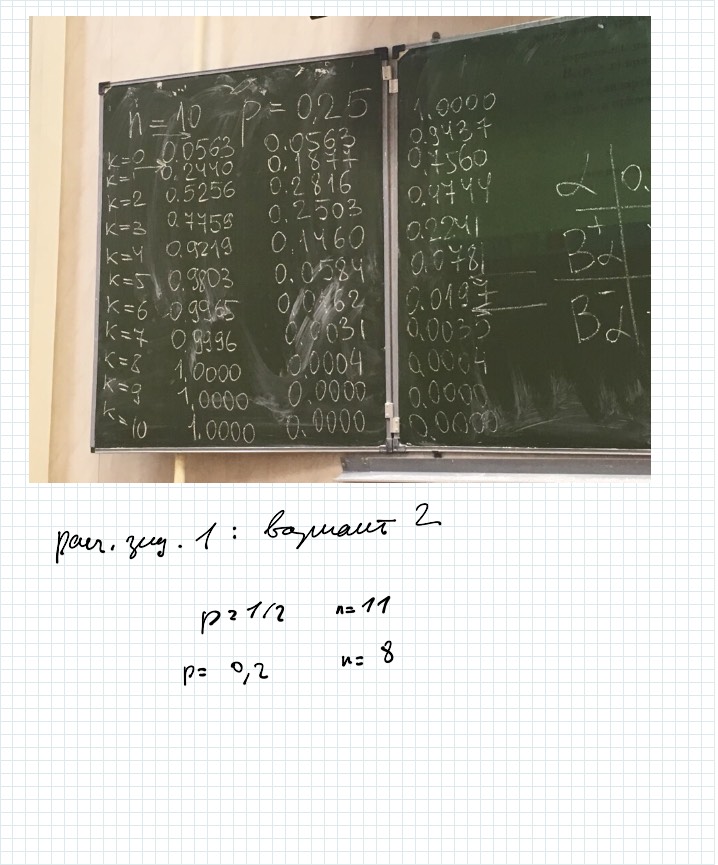 n = 10 p = 0.25
k=0 0.0563 0.0563 1.0000
k=1 0.2440 0.1877 0.9437
k=2 0.5256 0.2816 0.7560
k=3 0.7759 0.2503 0.4744
k=4 0.9219 0.1460 0.2241
k=5 0.9803 0.0584 0.0781
k=6 0.9965 0.0162 0.0197
k=7 0.9996 0.0031 0.0035
k=8 1.0000 0.0004 0.0004
k=9 1.0000 0.0000 0.0000
k=10 1.0000 0.0000 0.0000
α 0.
B⁺α
B⁻α
расч. зад. 1 : вариант 2
p = 1/2 n = 11
p = 0,2 n = 8